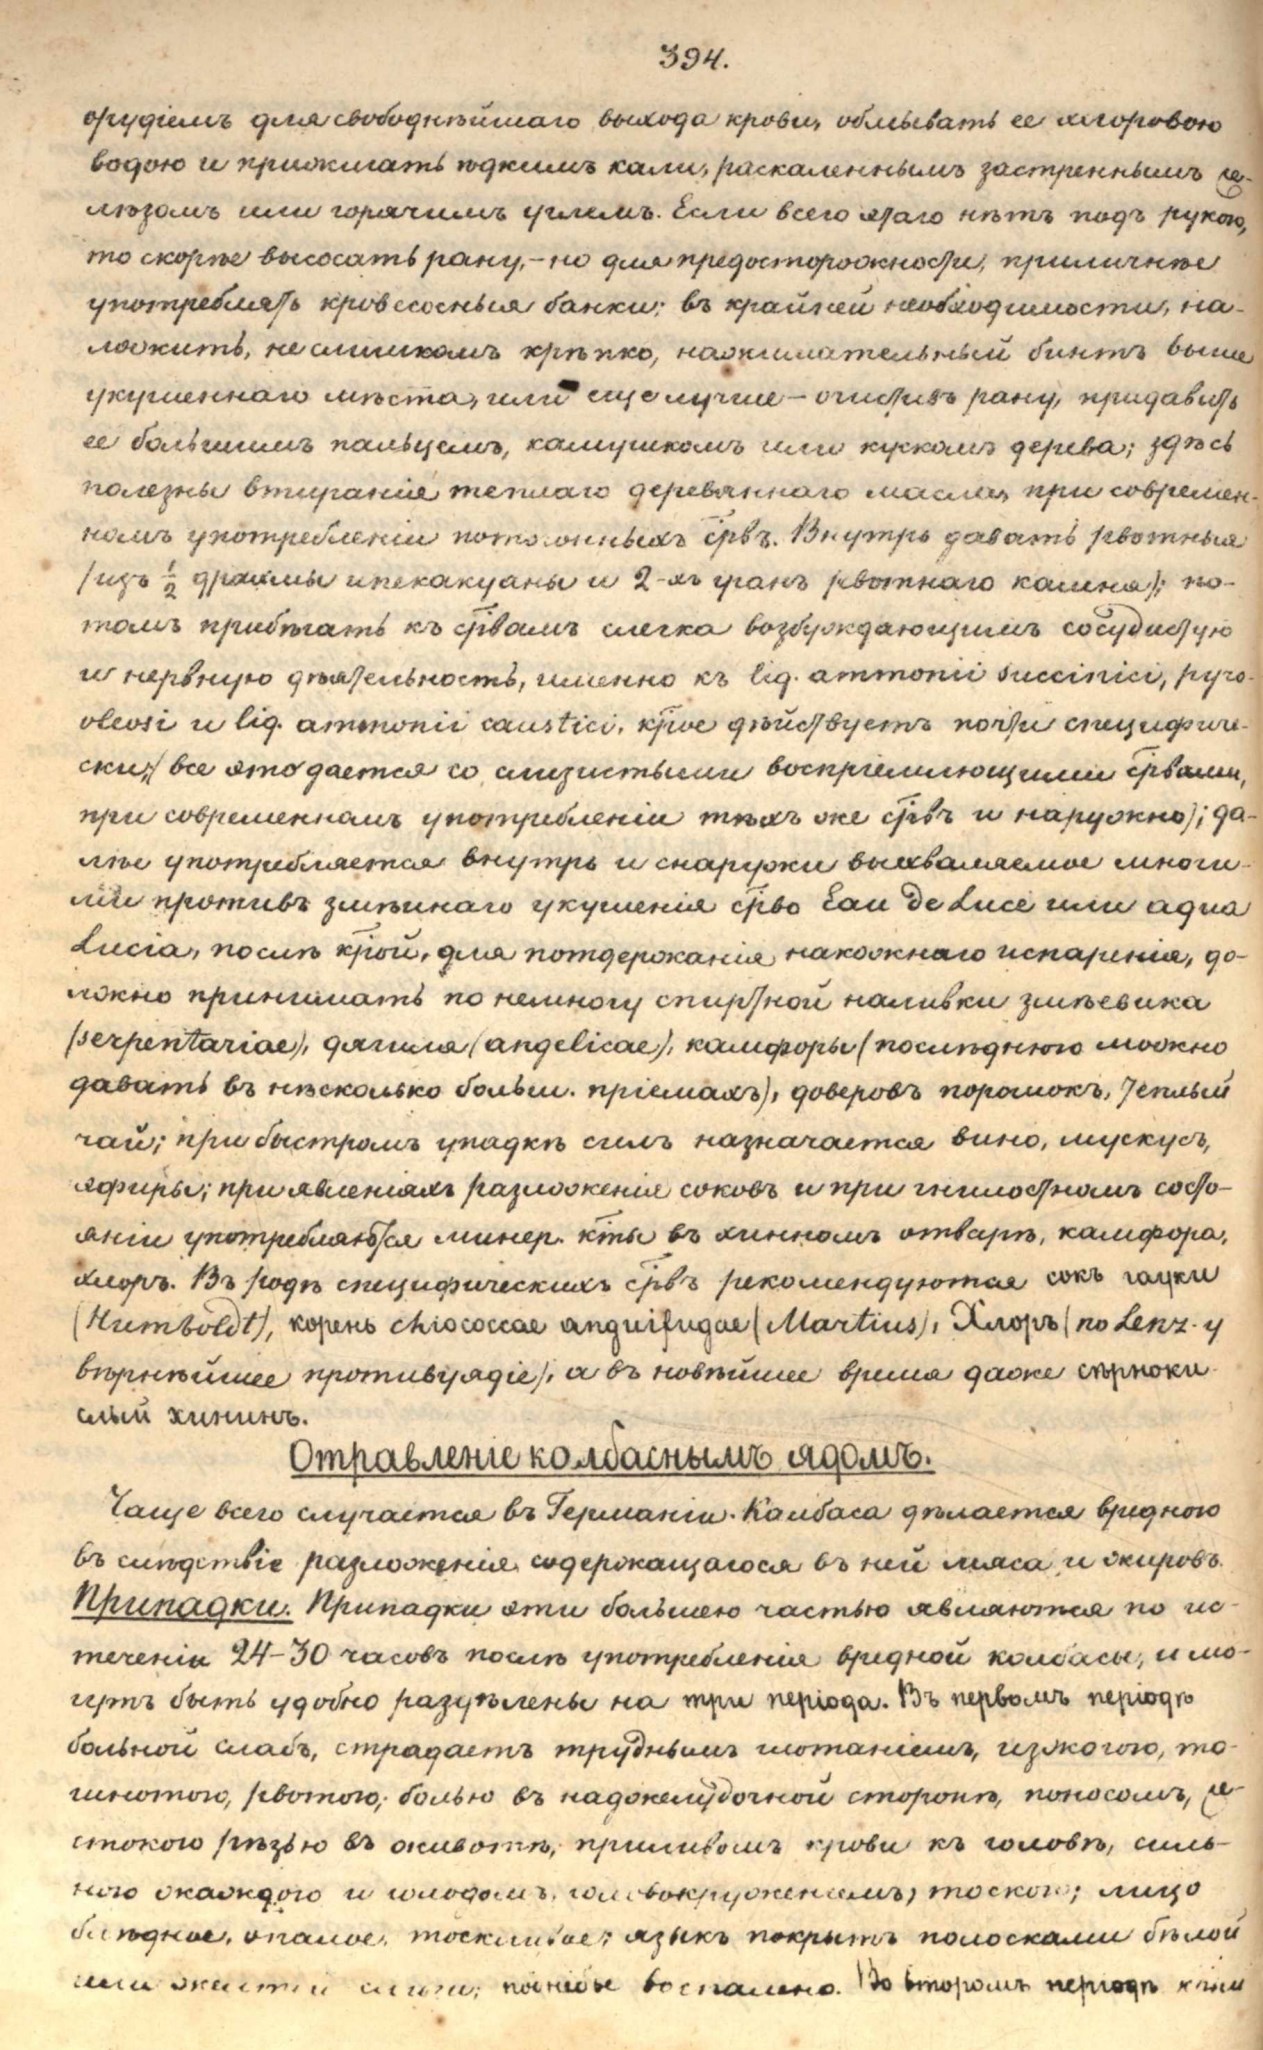 394.
орудіемъ для свободнѣйшаго выхода крови, обмывать ее хлоровою
водою и прижигать ѣдкимъ кали, раскаленнымъ застреннымъ же-
лѣзомъ или горячимъ углемъ. Если всего этаго нѣтъ подъ рукою,
то скорѣе высосать рану, – но для предосторожности, приличнѣе
употреблять кровесосныя банки; въ крайней необходимости, на-
ложить, не слишкомъ крѣпко, нажимательный бинтъ выше
укушеннаго мѣста, или еще лучше – очистивъ рану, придавить
ее большимъ пальцемъ, камушкомъ или кускомъ дерева; здѣсь
полезны втиранія теплаго деревяннаго масла, при современ-
номъ употребленіи потогонныхъ срвъ. Внутрь давать рвотныя
(изъ ½ драхмы ипекакуаны и 2-хъ гранъ рвотнаго камня); по-
томъ прибѣгать къ срвамъ слегка возбуждающимъ сосудистую
и нервную дѣятельность, именно къ liq. ammonii succinici, pyro-
oleosi и liq. ammonii caustici, крое дѣйствуетъ почти специфиче-
ски; (все это дается со слизистыми воспріемлющими срвами,
при современномъ употребленіи тѣхъ же срвъ и наружно); да-
лѣе употребляется внутрь и снаружи выхваляемое многи-
ми противъ змѣинаго укушенія срво Eau de Luce или aqua
Lucia, послѣ крой, для потдержанія накожнаго испаренія, до-
лжно принимать по немногу спиртной наливки змѣевика
(serpentariae), дягиля (angelicae), камфоры (послѣднюю можно
давать въ нѣсколько больш. пріемахъ), доверовъ порошокъ, теплый
чай; при быстромъ упадкѣ силъ назначается вино, мускусъ,
эфиры; при явленіяхъ разложенія соковъ и при гнилостномъ состо-
яніи употребляются минер. кты въ хинномъ отварѣ, камфора,
хлоръ. Въ родѣ специфическихъ срвъ рекомендуются сокъ гауки
(Humboldt), корень chiococcae anguifugae (Martius), Хлоръ (по Lenz-у
вѣрнѣйшее противуядіе), а въ новѣйшее время даже сѣрноки-
слый хининъ.
Отравленіе колбаснымъ ядомъ.
Чаще всего случается въ Германіи. Калбаса дѣлается вредною
въ слѣдствіе разложенія содержащагося въ ней мяса и жировъ.
Припадки. Припадки эти большею частью являются по ис-
теченіи 24–30 часовъ послѣ употребленія вредной колбасы, и мо-
гутъ быть удобно раздѣлены на три періода. Въ первомъ періодѣ
больной слабъ, страдаетъ труднымъ глотаніемъ, изжогою, то-
шнотою, рвотою, болью въ надожелудочной сторонѣ, поносомъ, же-
стокою рѣзью въ животѣ, приливомъ крови къ головѣ, силь-
ною жаждою и голодомъ, головокруженіемъ, тоскою; лицо
блѣдное, опалое, тоскливое; языкъ покрытъ полосками бѣлой
или желтой слизи; поднебье воспалено. Во второмъ періодѣ